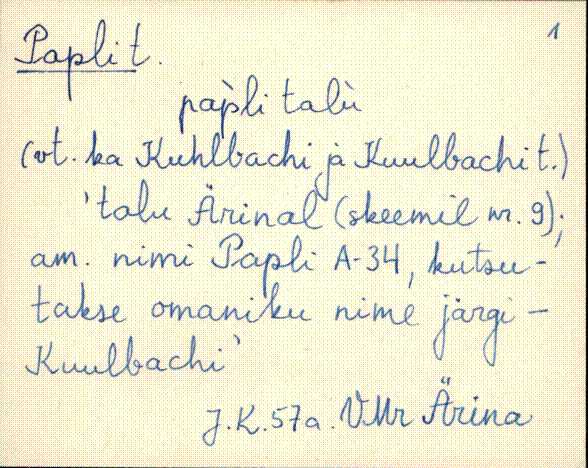 Papli t. 1
pàpli talù
(vt. ka Kuhlbachi ja Kuulbachi t.)
'talu Ärinal (skeemil nr. 9);
am. nimi Papli A-34, kutsu-
takse omaniku nime järgi –
Kuulbachi'
J.K.57a. VMr Ärina